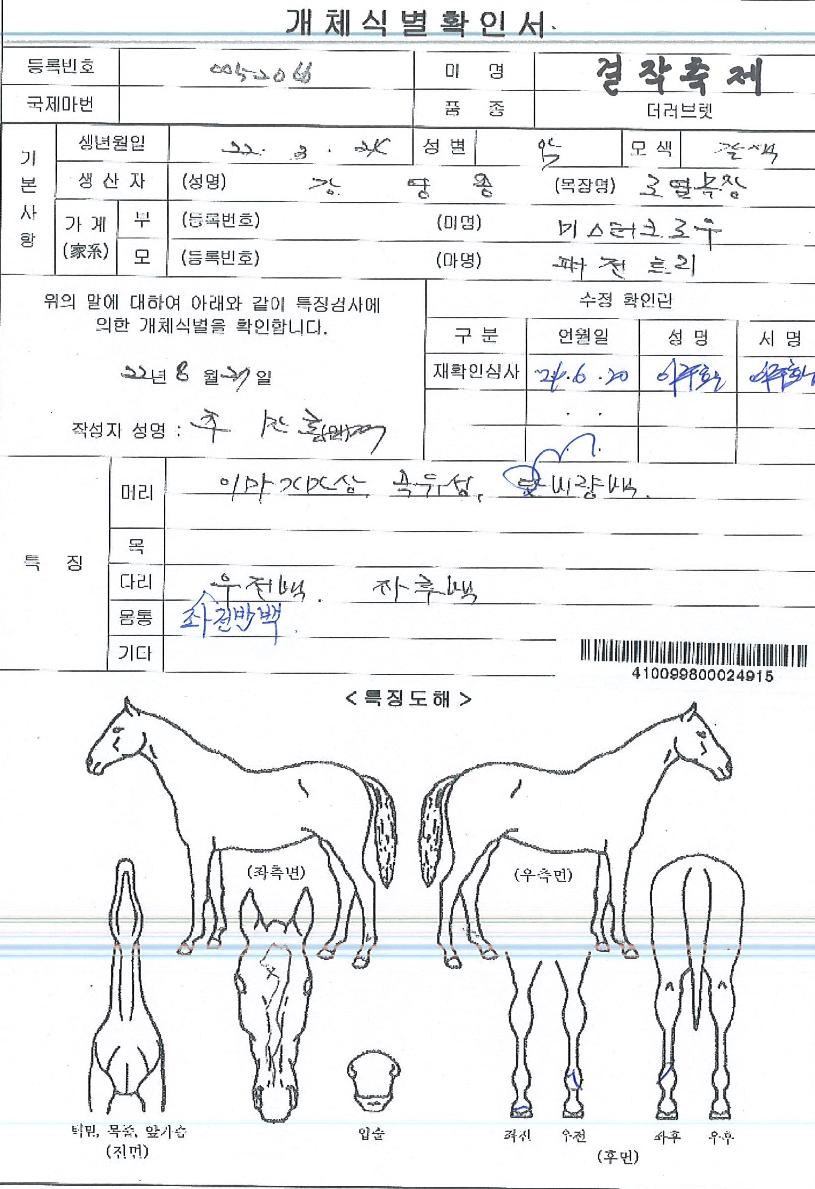 개체식별확인서
등록번호 0052066 미 명 걸작축제
국제마번 품 종 더러브렛
기본사항
생년월일 22. 3. 24 성별 암 모색 갈색
생산자 (성명) 강 (목장명) 로열목장
가계 (家系) 부 (등록번호) (미명) 미스터크로우
모 (등록번호) (마명) 퍼전트리
위의 말에 대하여 아래와 같이 특징검사에
의한 개체식별을 확인합니다.
22년 8월 29일
작성자 성명 :
수정 확인란
구분 언월일 성명 서명
재확인심사 24.6.20
. .
특 징
머리 이마 곡두성, 비량백.
목
다리 우전백. 좌후백
몸통 좌전반백
기다
410099800024915
<특징도해>
(좌측면) (우측면)
턱밑, 목줄, 앞가슴
(전면)
입술
좌전 우전 좌후 우후
(후면)